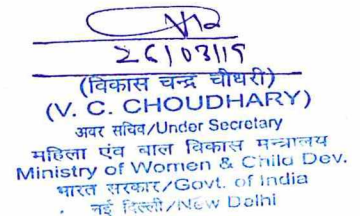 26/03/19
(विकास चन्द्र चौधरी)
(V. C. CHOUDHARY)
अवर सचिव/Under Secretary
महिला एंव बाल विकास मन्त्रालय
Ministry of Women & Child Dev.
भारत सरकार/Govt. of India
नई दिल्ली/New Delhi